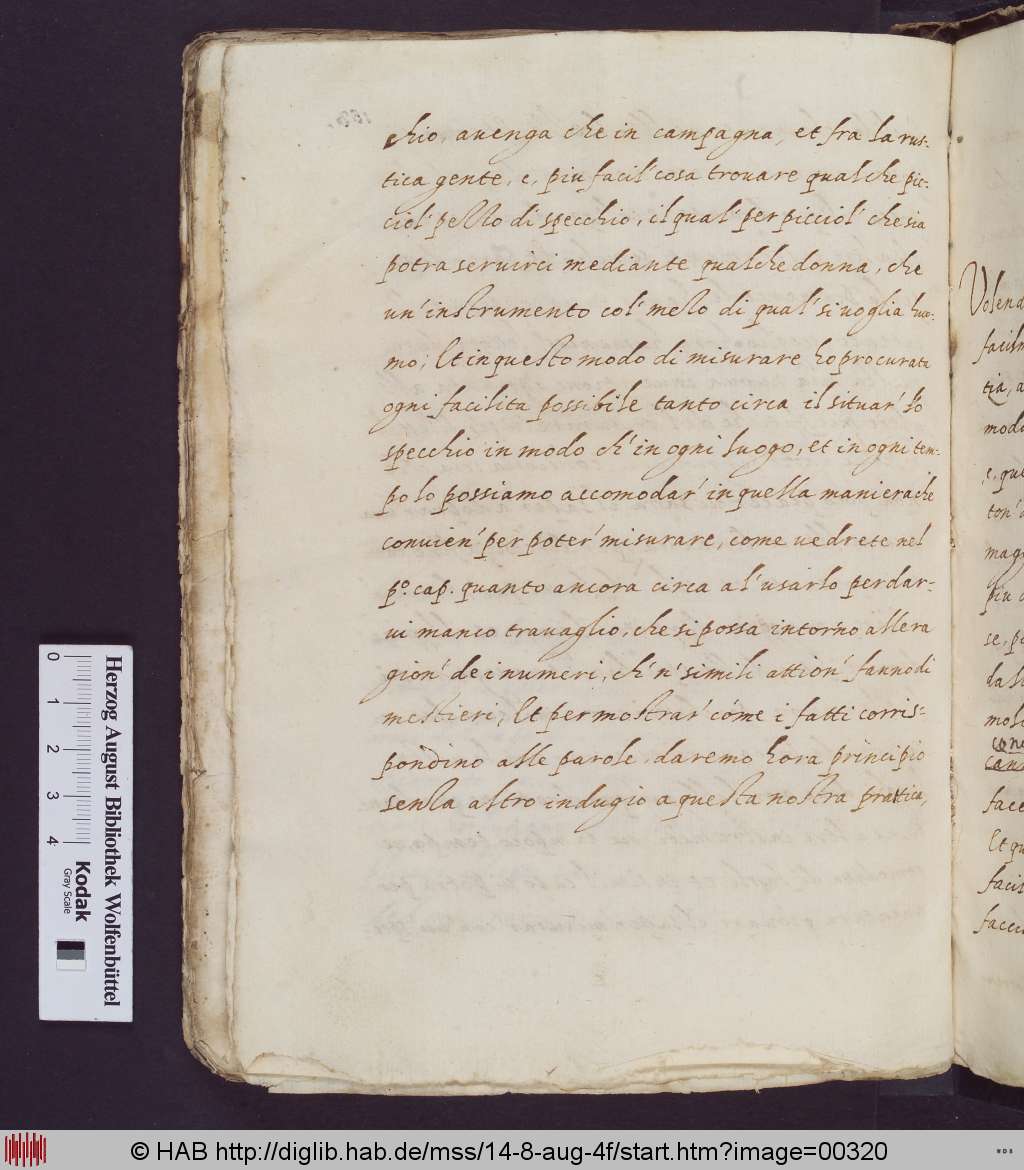 chio, auenga che in campagna, et fra la rus-
tica gente, e, piu facil' cosa trouare qualche pic-
ciol' pezzo di specchio, il qual' per picciol' che sia
potra seruirci mediante qualche donna, che
un' instrumento col' mezo di qual' si uoglia huo-
mo; Et in questo modo di misurare ho procurata
ogni facilita possibile tanto circa il situar' lo
specchio in modo ch' in ogni luogo, et in ogni tem-
po lo possiamo accomodar' in quella maniera che
conuien' per poter' misurare, come uedrete nel
p.º cap. quanto ancora circa a l' usarlo per dar-
ui manco trauaglio, che si possa intorno alle ra
gion' de i numeri, ch' n' simili attion' fanno di
mestieri; Et per mostrar' come i fatti corris-
pondino alle parole, daremo hora principio
senza altro indugio a questa nostra prattica,
Volend
facis
tia, a
modo
e, que
ton' a
mag
piu
se, p
dal
mol
con
can
face
Et qu
facis
facci
0 1 2 3 4
Herzog August Bibliothek Wolfenbüttel
Kodak
Gray Scale
© HAB http://diglib.hab.de/mss/14-8-aug-4f/start.htm?image=00320